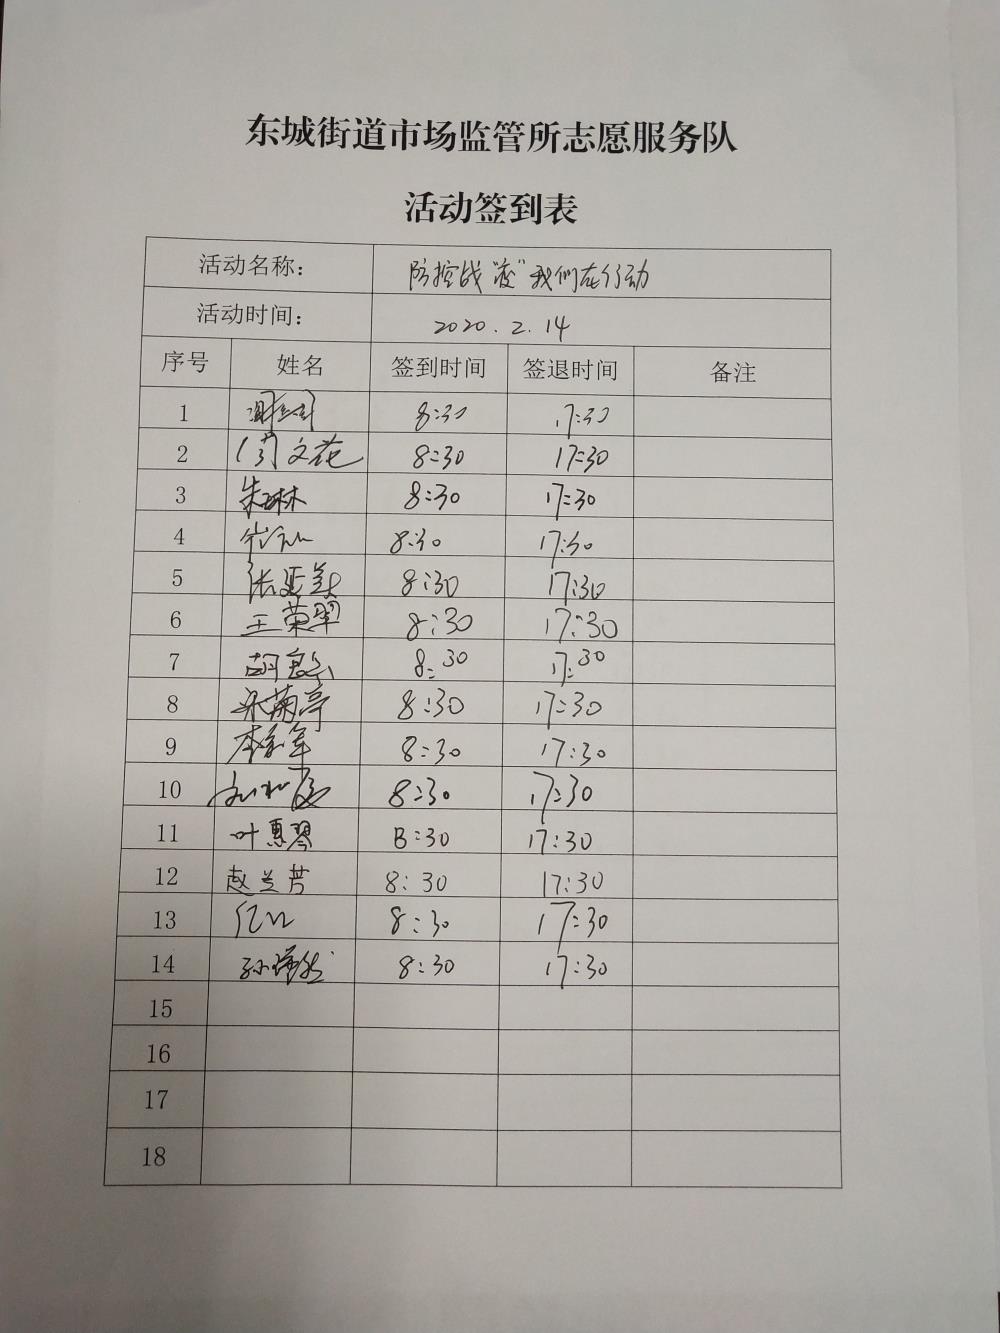 东城街道市场监管所志愿服务队
活动签到表
活动名称： 防控战“疫”我们在行动
活动时间： 2020.2.14
序号 姓名 签到时间 签退时间 备注
1 8:30 17:30
2 周文花 8:30 17:30
3 朱琳 8:30 17:30
4 8:30 17:30
5 张延美 8:30 17:30
6 王荣翠 8:30 17:30
7 8:30 17:30
8 宋菊亭 8:30 17:30
9 8:30 17:30
10 8:30 17:30
11 叶惠琴 8:30 17:30
12 赵兰芳 8:30 17:30
13 8:30 17:30
14 8:30 17:30
15
16
17
18